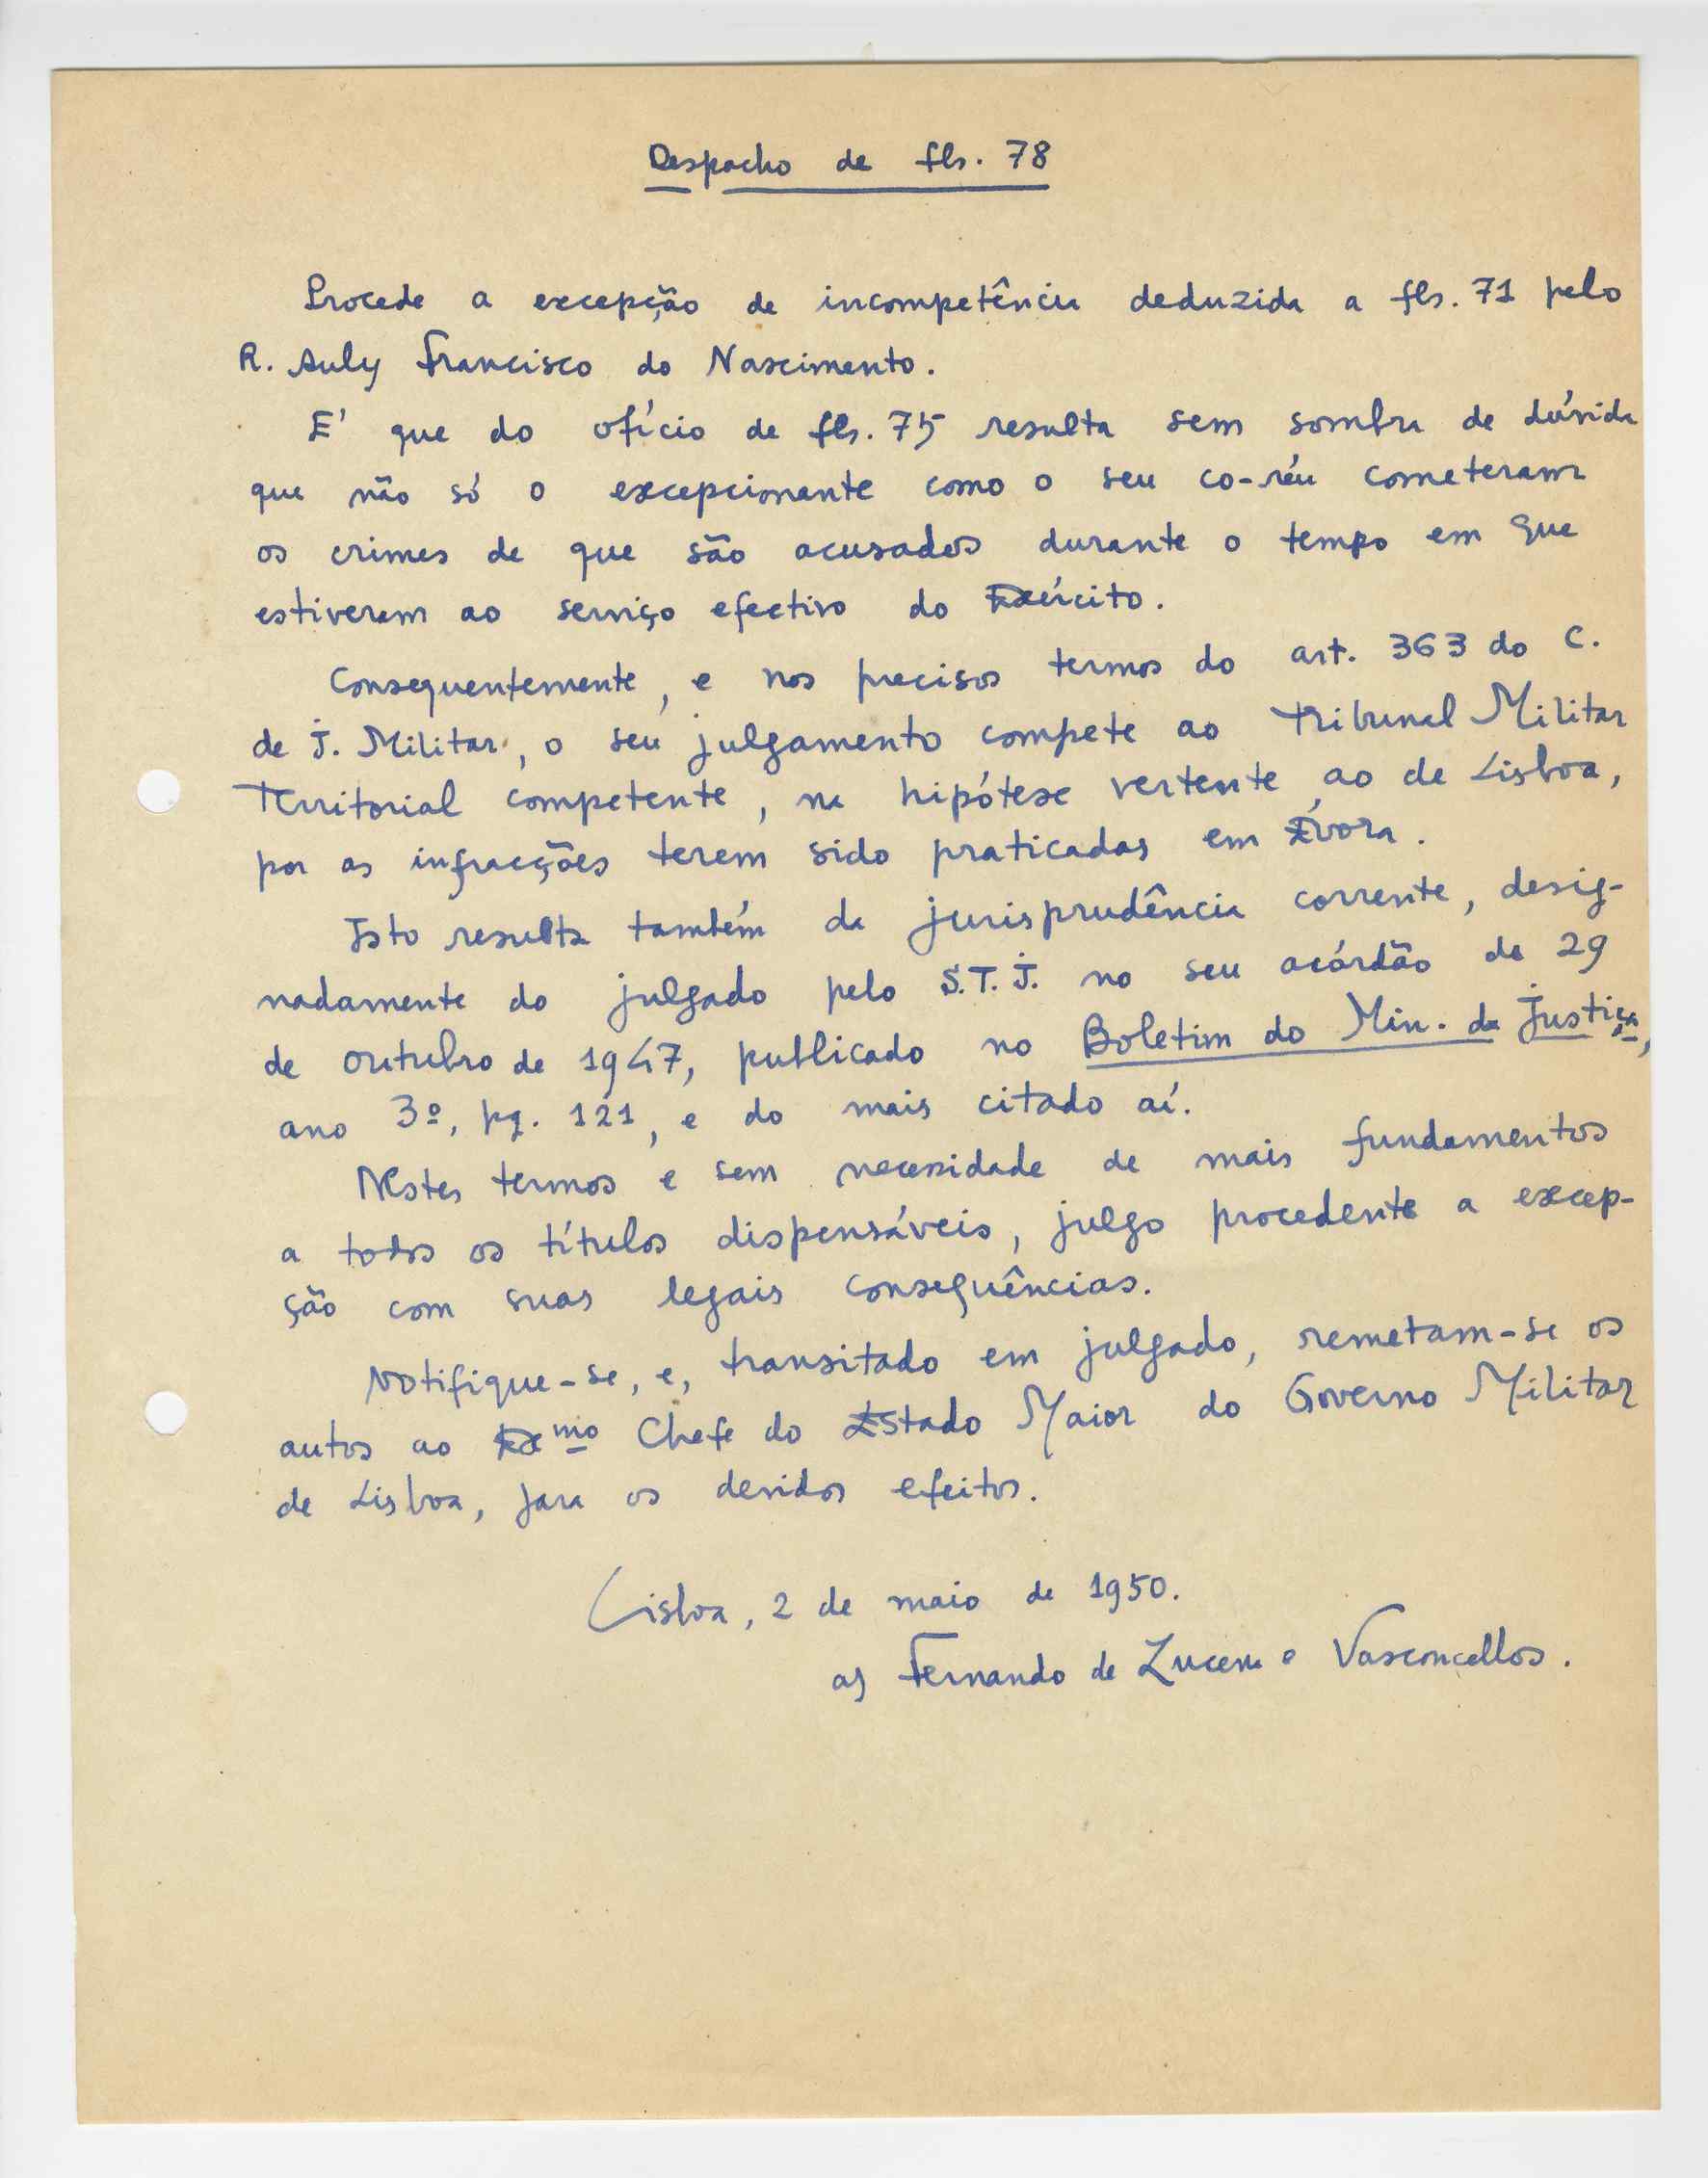 Despacho de fls. 78
Procede a excepção de incompetência deduzida a fls. 71 pelo
R. Auly Francisco do Nascimento.
E' que do ofício de fls. 75 resulta sem sombra de dúvida
que não só o excepcionante como o seu co-réu cometeram
os crimes de que são acusados durante o tempo em que
estiveram ao serviço efectivo do Exército.
Consequentemente, e nos precisos termos do art. 363 do C.
de J. Militar, o seu julgamento compete ao Tribunal Militar
Territorial competente, na hipótese vertente ao de Lisboa,
por as infracções terem sido praticadas em Évora.
Isto resulta também da jurisprudência corrente, desig-
nadamente do julgado pelo S.T.J. no seu acórdão de 29
de outubro de 1947, publicado no Boletim do Min. da Justiça,
ano 3º, pg. 121, e do mais citado aí.
Nestes termos e sem necessidade de mais fundamentos
a todos os títulos dispensáveis, julgo procedente a excep-
ção com suas legais consequências.
Notifique-se, e, transitado em julgado, remetam-se os
autos ao Exmo Chefe do Estado Maior do Governo Militar
de Lisboa, para os devidos efeitos.
Lisboa, 2 de maio de 1950.
as Fernando de Lucena e Vasconcellos.